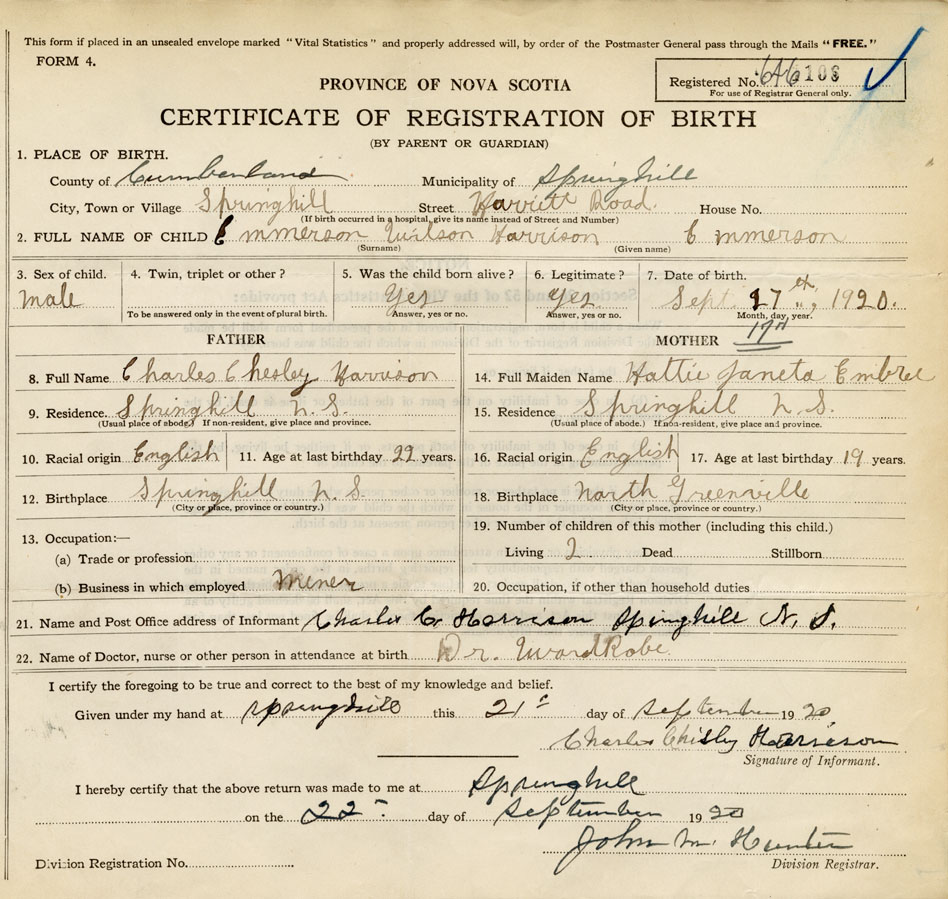 This form if placed in an unsealed envelope marked "Vital Statistics" and properly addressed will, by order of the Postmaster General pass through the Mails "FREE."
FORM 4.
PROVINCE OF NOVA SCOTIA
Registered No. 646108
For use of Registrar General only.
CERTIFICATE OF REGISTRATION OF BIRTH
(BY PARENT OR GUARDIAN)
1. PLACE OF BIRTH.
County of Cumberland Municipality of Springhill
City, Town or Village Springhill Street Harriett Road. House No.
(If birth occurred in a hospital, give its name instead of Street and Number)
2. FULL NAME OF CHILD Emmerson Wilson Harrison Emmerson
(Surname) (Given name)
3. Sex of child. 4. Twin, triplet or other? 5. Was the child born alive? 6. Legitimate? 7. Date of birth.
male Yes Yes Sept 17th, 1920.
To be answered only in the event of plural birth. Answer, yes or no. Answer, yes or no. Month, day, year.
17th
FATHER MOTHER
8. Full Name Charles Chesley Harrison 14. Full Maiden Name Hattie Janeta Embree
9. Residence. Springhill N. S. 15. Residence Springhill N. S.
(Usual place of abode.) If non-resident, give place and province. (Usual place of abode.) If non-resident, give place and province.
10. Racial origin English 11. Age at last birthday 22 years. 16. Racial origin English 17. Age at last birthday 19 years.
12. Birthplace Springhill N. S. 18. Birthplace North Greenville
(City or place, province or country.) (City or place, province or country.)
13. Occupation:— 19. Number of children of this mother (including this child.)
(a) Trade or profession Living 2 Dead Stillborn
(b) Business in which employed Miner 20. Occupation, if other than household duties
21. Name and Post Office address of Informant Charles C. Harrison Spinghill N. S.
22. Name of Doctor, nurse or other person in attendance at birth Dr. WardRobe.
I certify the foregoing to be true and correct to the best of my knowledge and belief.
Given under my hand at Springhill this 21st day of September 1920
Charles Chisley Harrieson
Signature of Informant.
I hereby certify that the above return was made to me at Springhill
on the 22 day of September 1920
John M. Hunter
Division Registration No. Division Registrar.